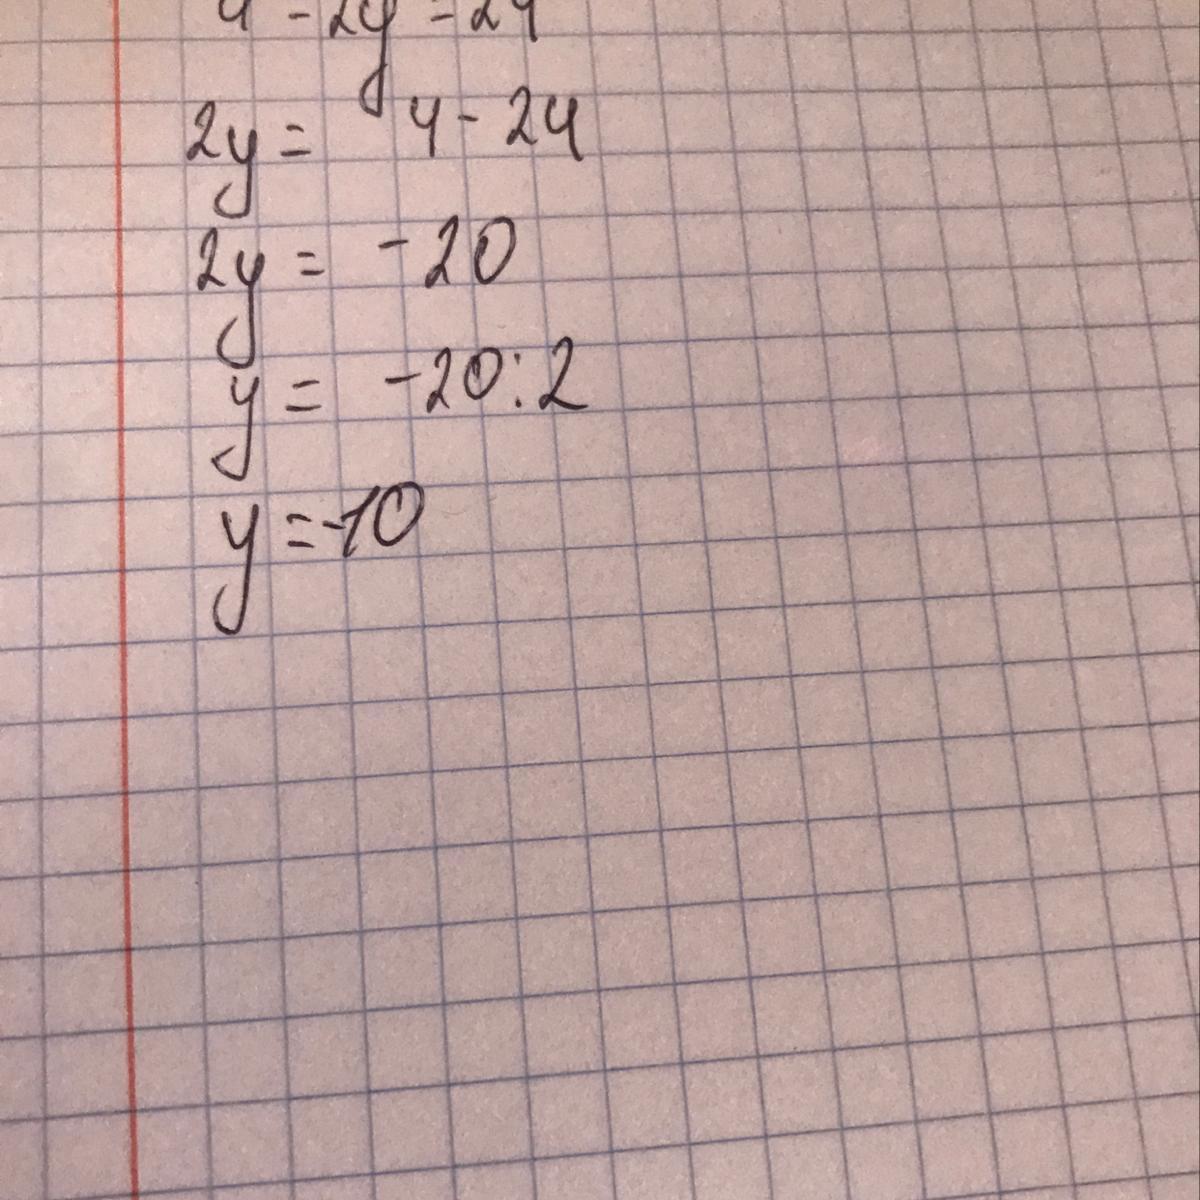 4 - 2y = 24
2y = 4 - 24
2y = -20
y = -20:2
y = -10